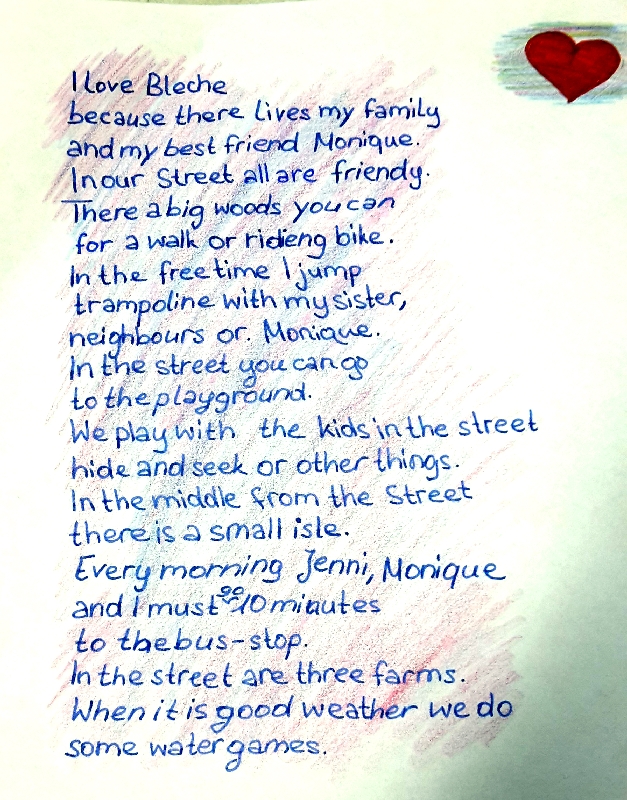 I love Bleche
because there lives my family
and my best friend Monique.
In our Street all are friendly.
There a big woods you can
for a walk or ridieng bike.
In the free time I jump
trampoline with my sister,
neighbours or. Monique.
In the street you can go
to the playground.
We play with the kids in the street
hide and seek or other things.
In the middle from the Street
there is a small isle.
Every morning Jenni, Monique
and I must 10 minutes
to the bus-stop.
In the street are three farms.
When it is good weather we do
some water games.